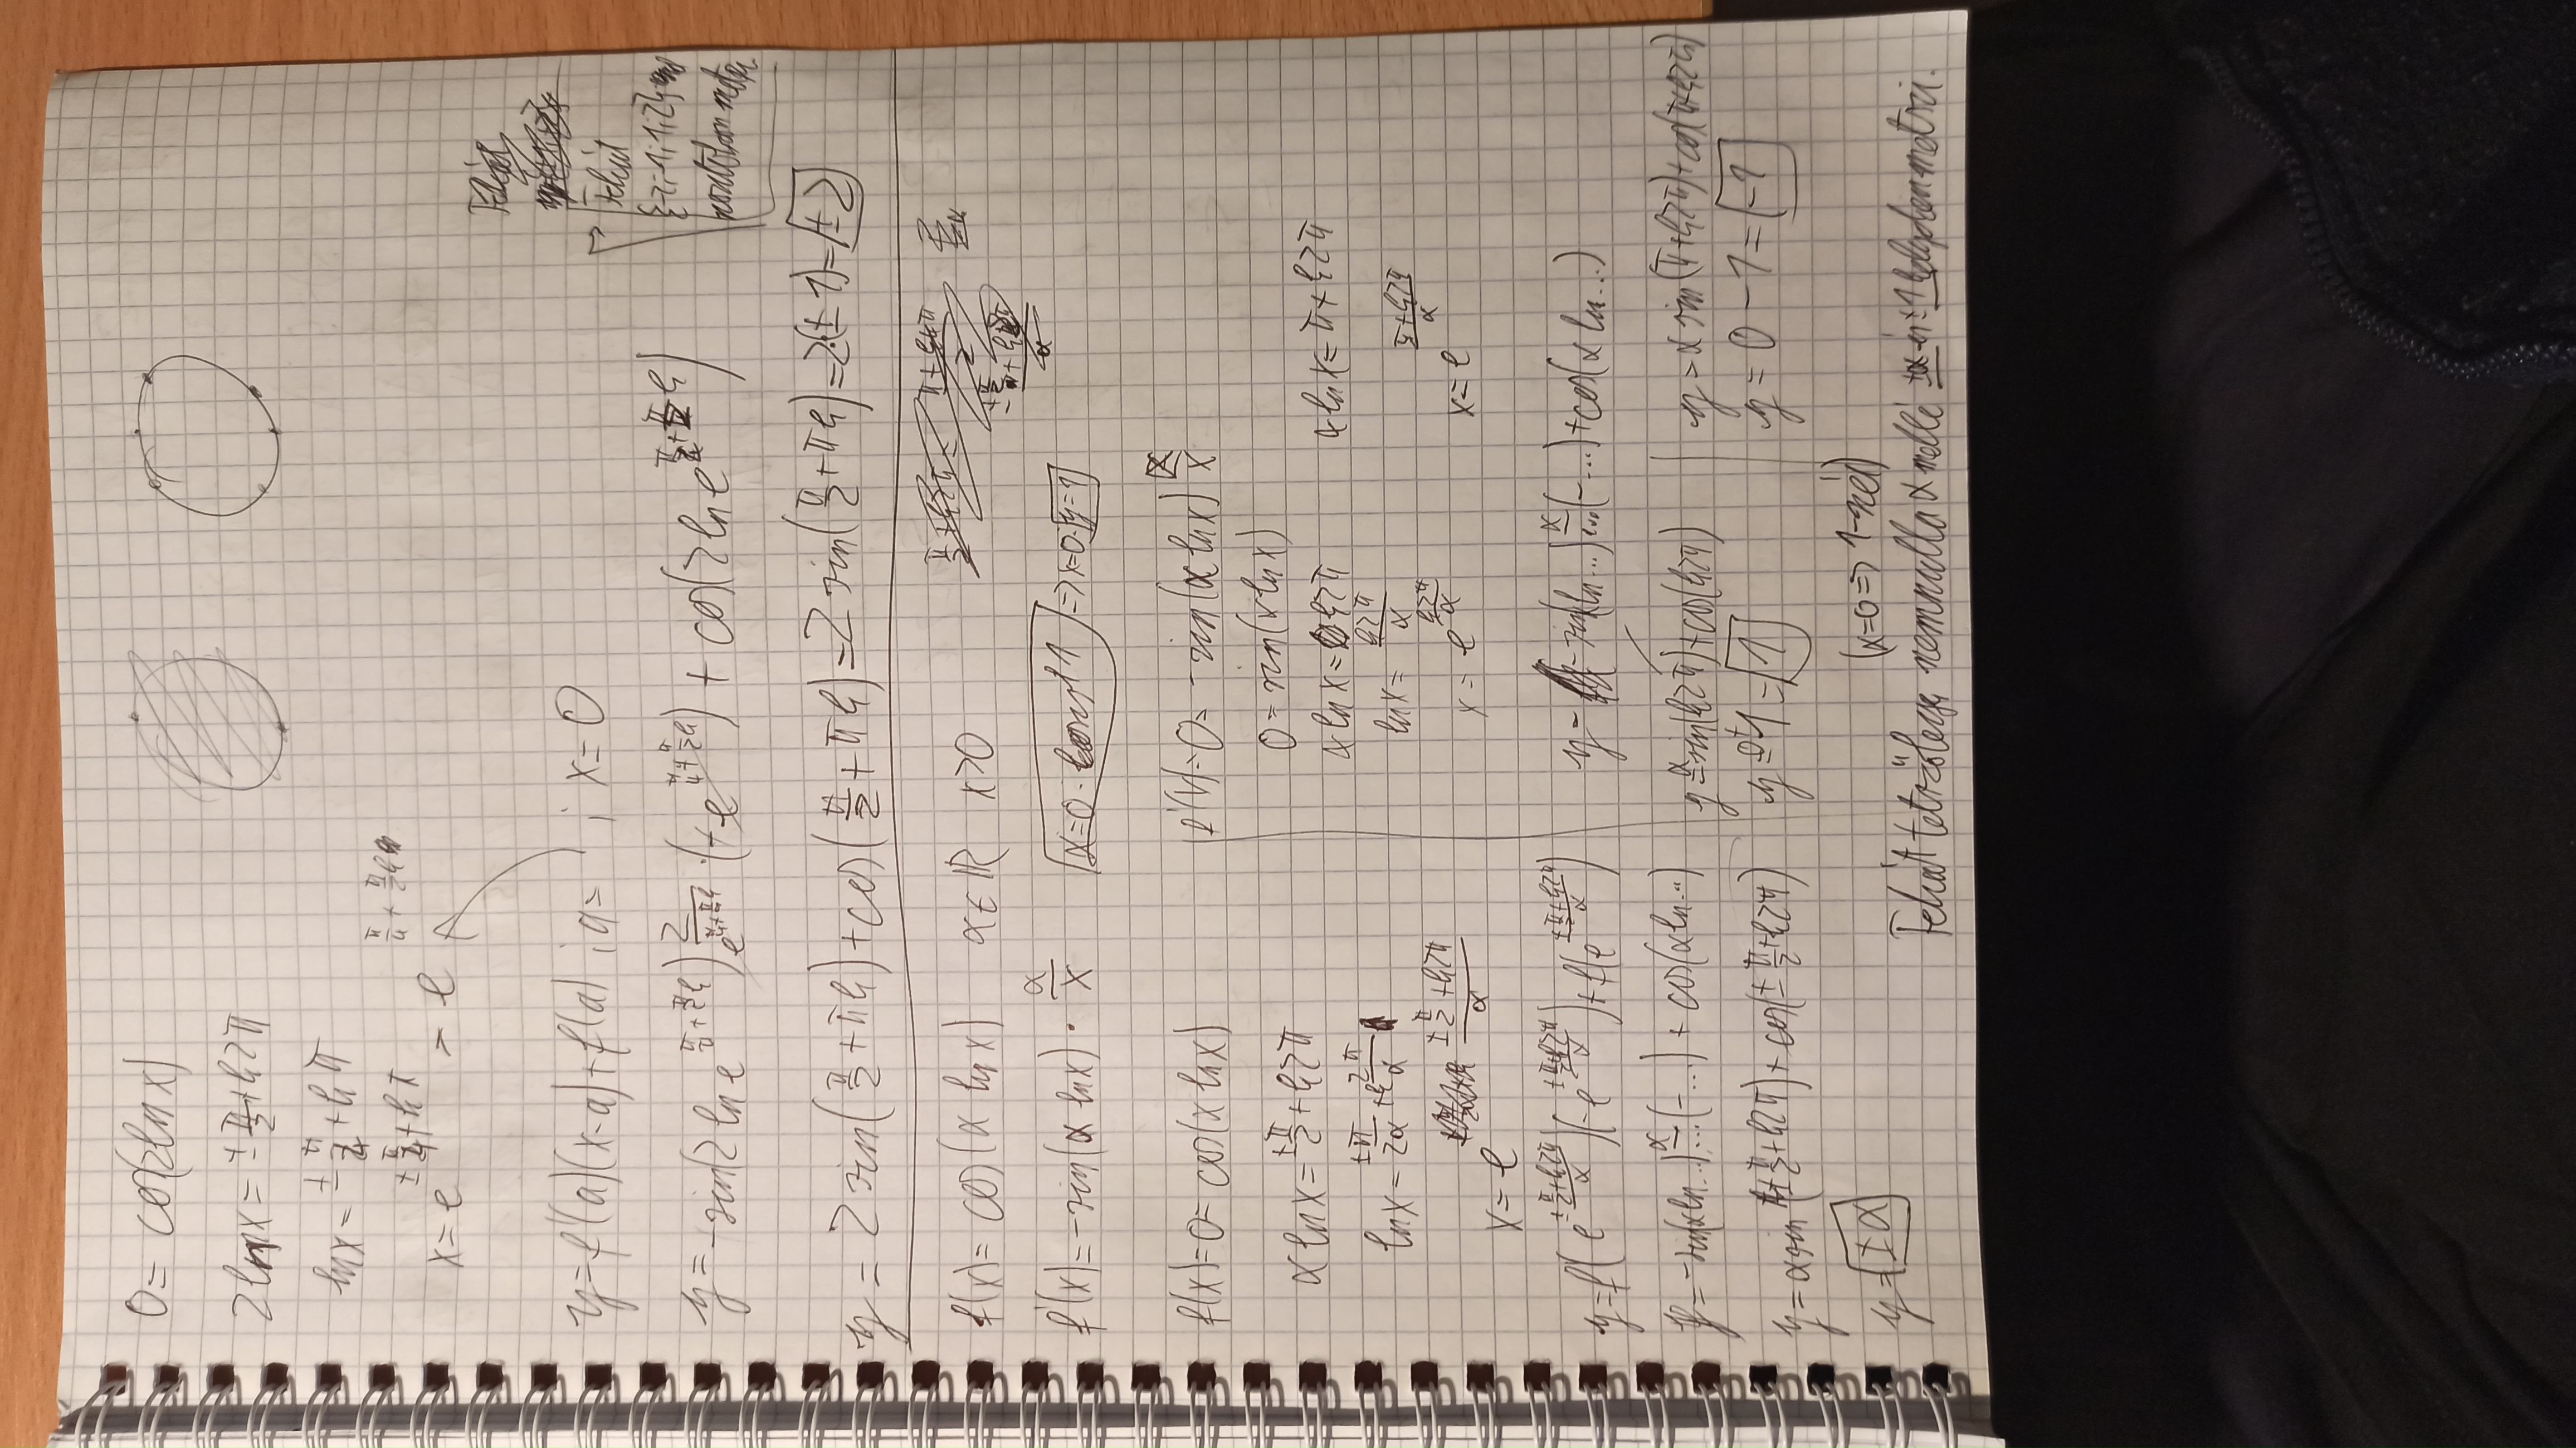 0 = cos(2 ln x)
2 ln x = ± π/2 + k2π
ln x = ± π/4 + kπ
x = e^(± π/4 + kπ) = e^(π/4 + π/2 k)
y = f'(a)(x-a) + f(a) ; a = ; x = 0
Tehát
{-2; -1; 1; 2}
y = -sin(2 ln e^(π/4 + π/2 k)) 2/e^(π/4 + π/2 k) · (-e^(π/4 + π/2 k)) + cos(2 ln e^(π/4 + π/2 k))
y = 2 sin(π/2 + πk) + cos(π/2 + πk) = 2 sin(π/2 + πk) = 2·(± 1) = ± 2
f(x) = cos(α ln x) α ∈ ℝ x > 0
f'(x) = -sin(α ln x) · α/x α = 0 : konst 1 => x = 0 : y = 1
f(x) = 0 = cos(α ln x)
α ln x = ± π/2 + k2π
ln x = ± π/2α + k 2π/α
x = e^((± π/2 + k2π)/α)
y = f'(e^((± π/2 + k2π)/α))(-e^((± π/2 + k2π)/α)) + f(e^((± π/2 + k2π)/α))
y = -sin(α ln ...) α/... (-...) + cos(α ln ...)
y = α sin(± π/2 + k2π) + cos(± π/2 + k2π)
y = ± α
f'(x) = 0 = -sin(α ln x) α/x
0 = sin(α ln x)
α ln x = k2π α ln x = π + k2π
ln x = k2π/α
x = e^(k2π/α) x = e^((π + k2π)/α)
y = -sin(ln ...) α/... (-...) + cos(α ln ...)
y = α sin(k2π) + cos(k2π) y = α sin(π + k2π) + cos(π + k2π)
y = 0 + 1 = 1 y = 0 - 1 = -1
(α = 0 => 1-nél)
Tehát tetszőleges nemnulla α mellé ± α és ± 1 helyeken metszi.